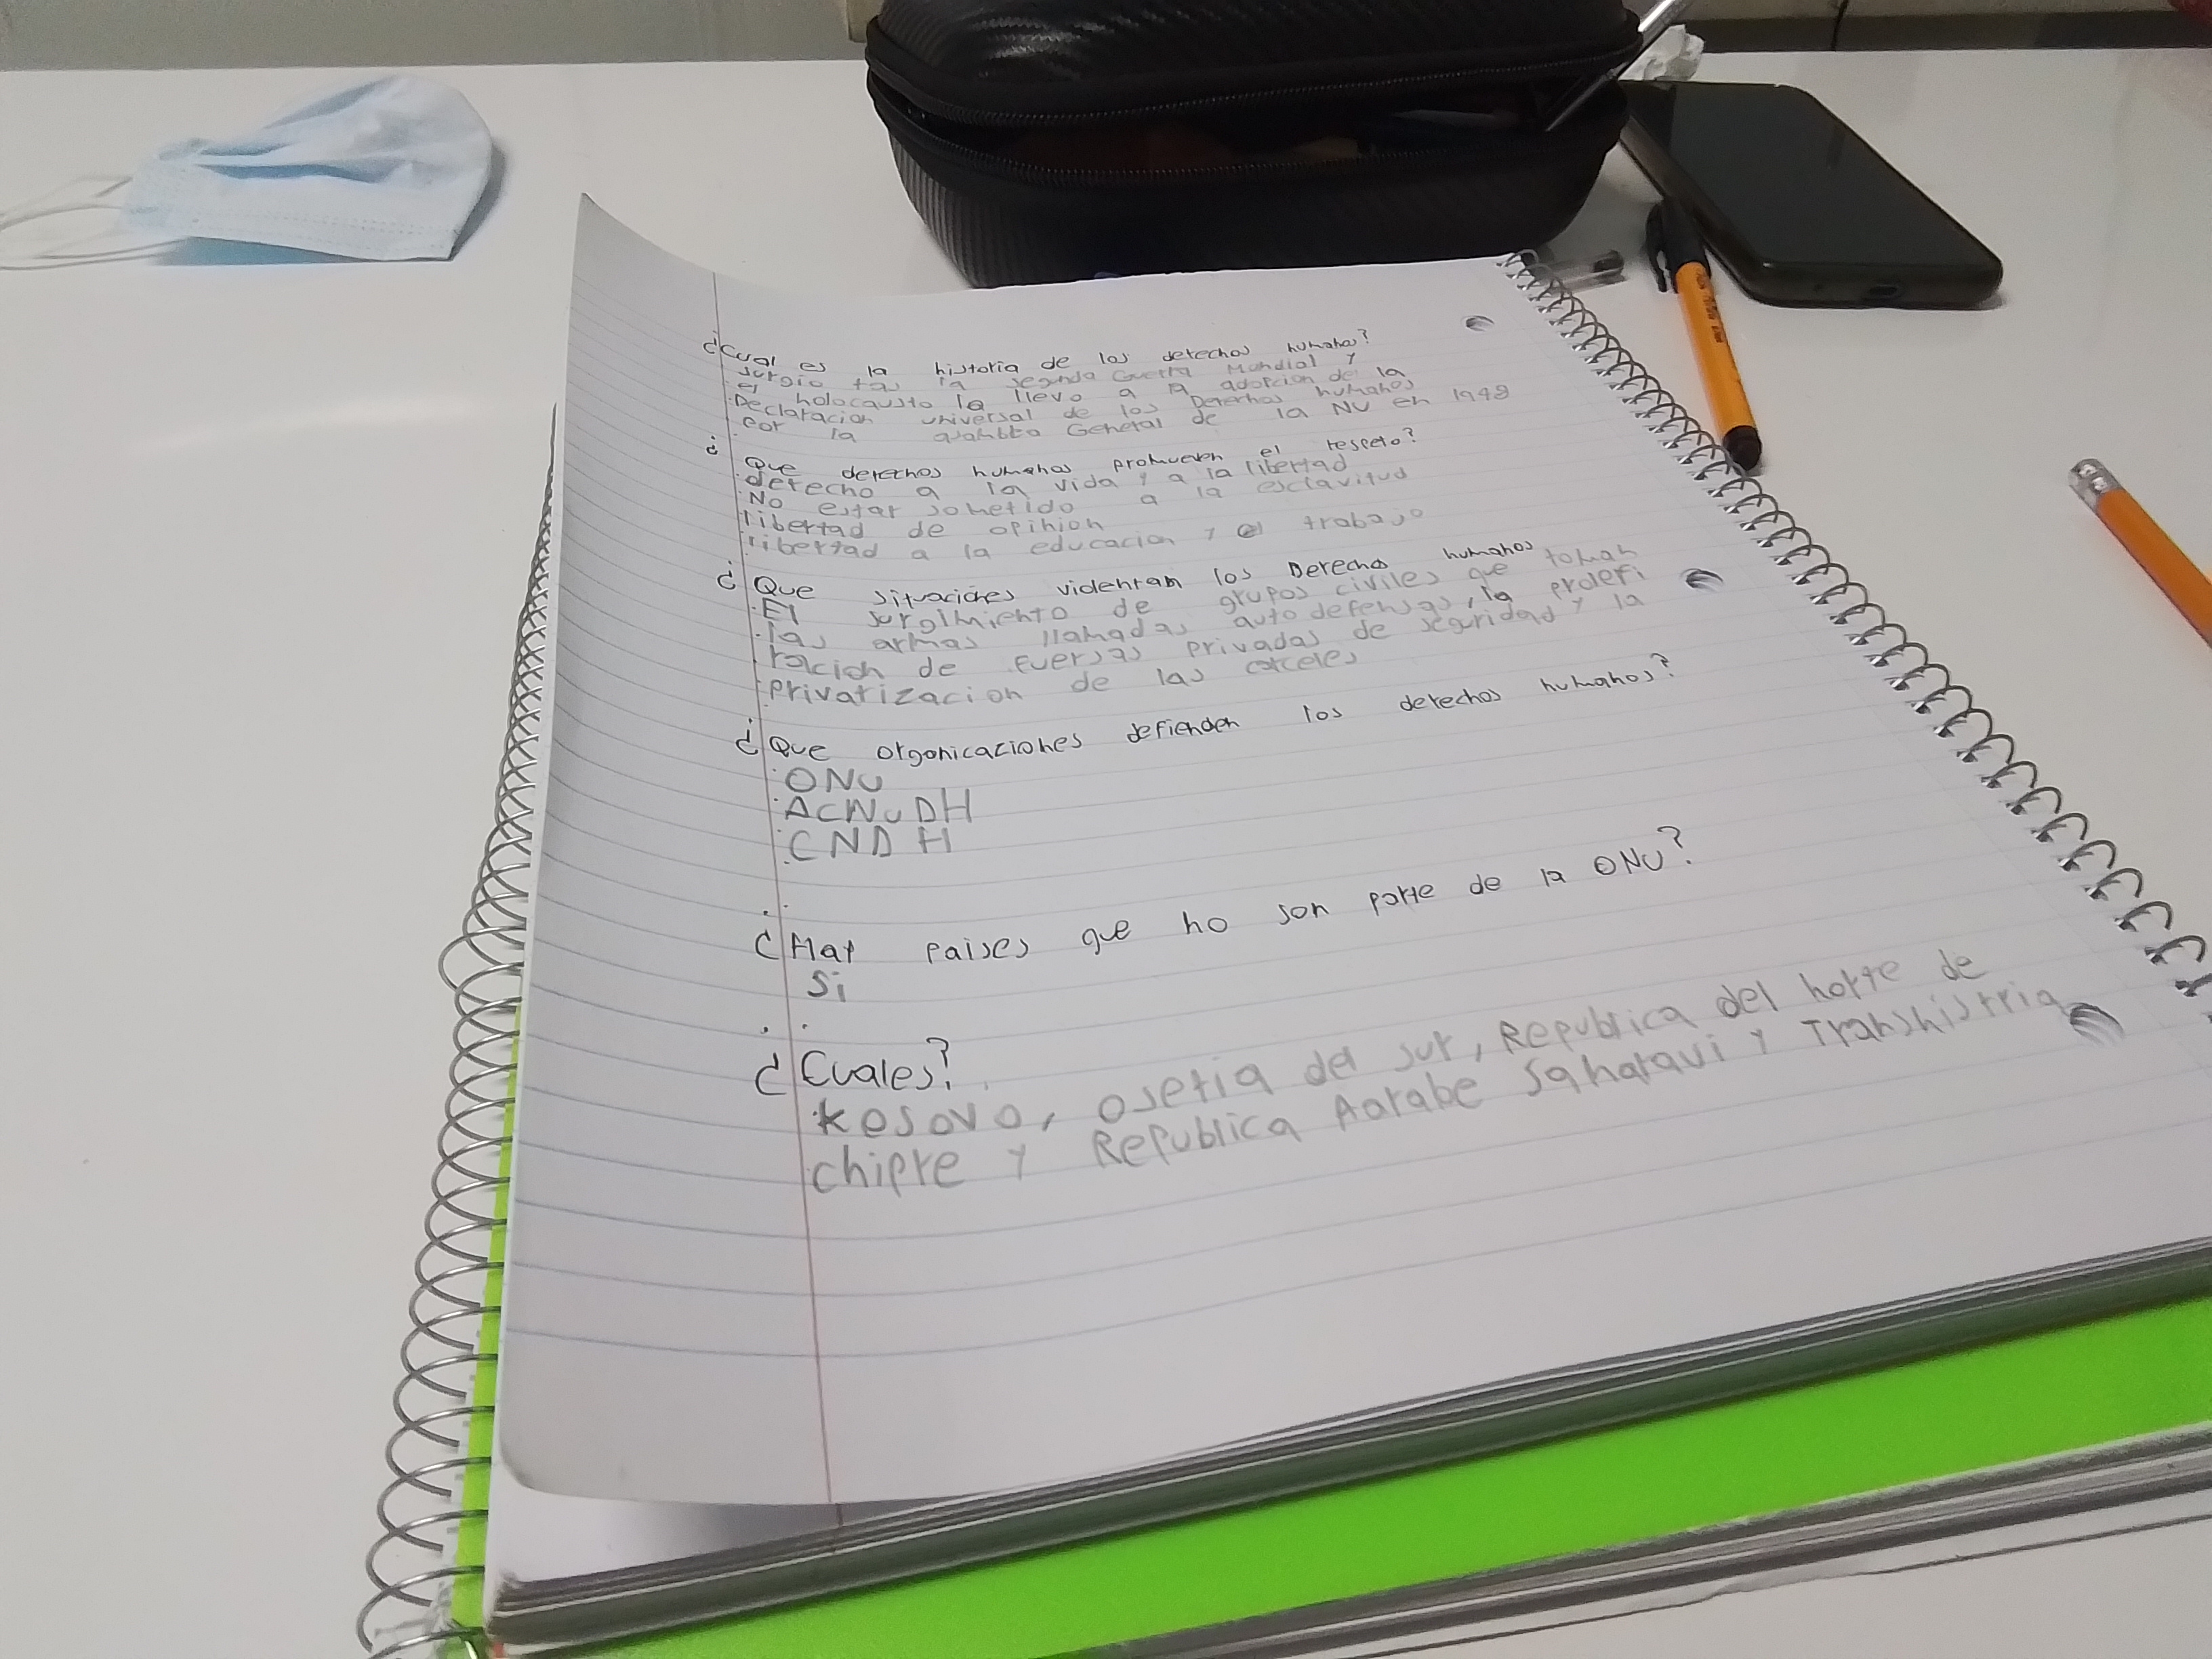 ¿Cual es la historia de los derechos humanos?
surgio tras la segunda Guerra Mundial y
el holocausto la llevo a la adopcion de la
Declaracion universal de los Derechos humanos
por la General de la NU en 1948
¿Que derechos humanos promueven el respeto?
derecho a la vida y a la libertad
No estar sometido a la esclavitud
libertad de opinion
libertad a la educacion y el trabajo
¿Que situaciones violentan los Derechos humanos
El surgimiento de grupos civiles que toman
las armas llamadas autodefensas, la prolefi
racion de fuersas privadas de seguridad y la
privatizacion de las carceles
¿Que organicaciones defienden los derechos humanos?
ONU
ACNUDH
CNDH
¿Hay paises que no son parte de la ONU?
Si
¿Cuales?
Kosovo, osetia del sur, Republica del norte de
chipre y Republica Aarabe Saharaui y Transnistria